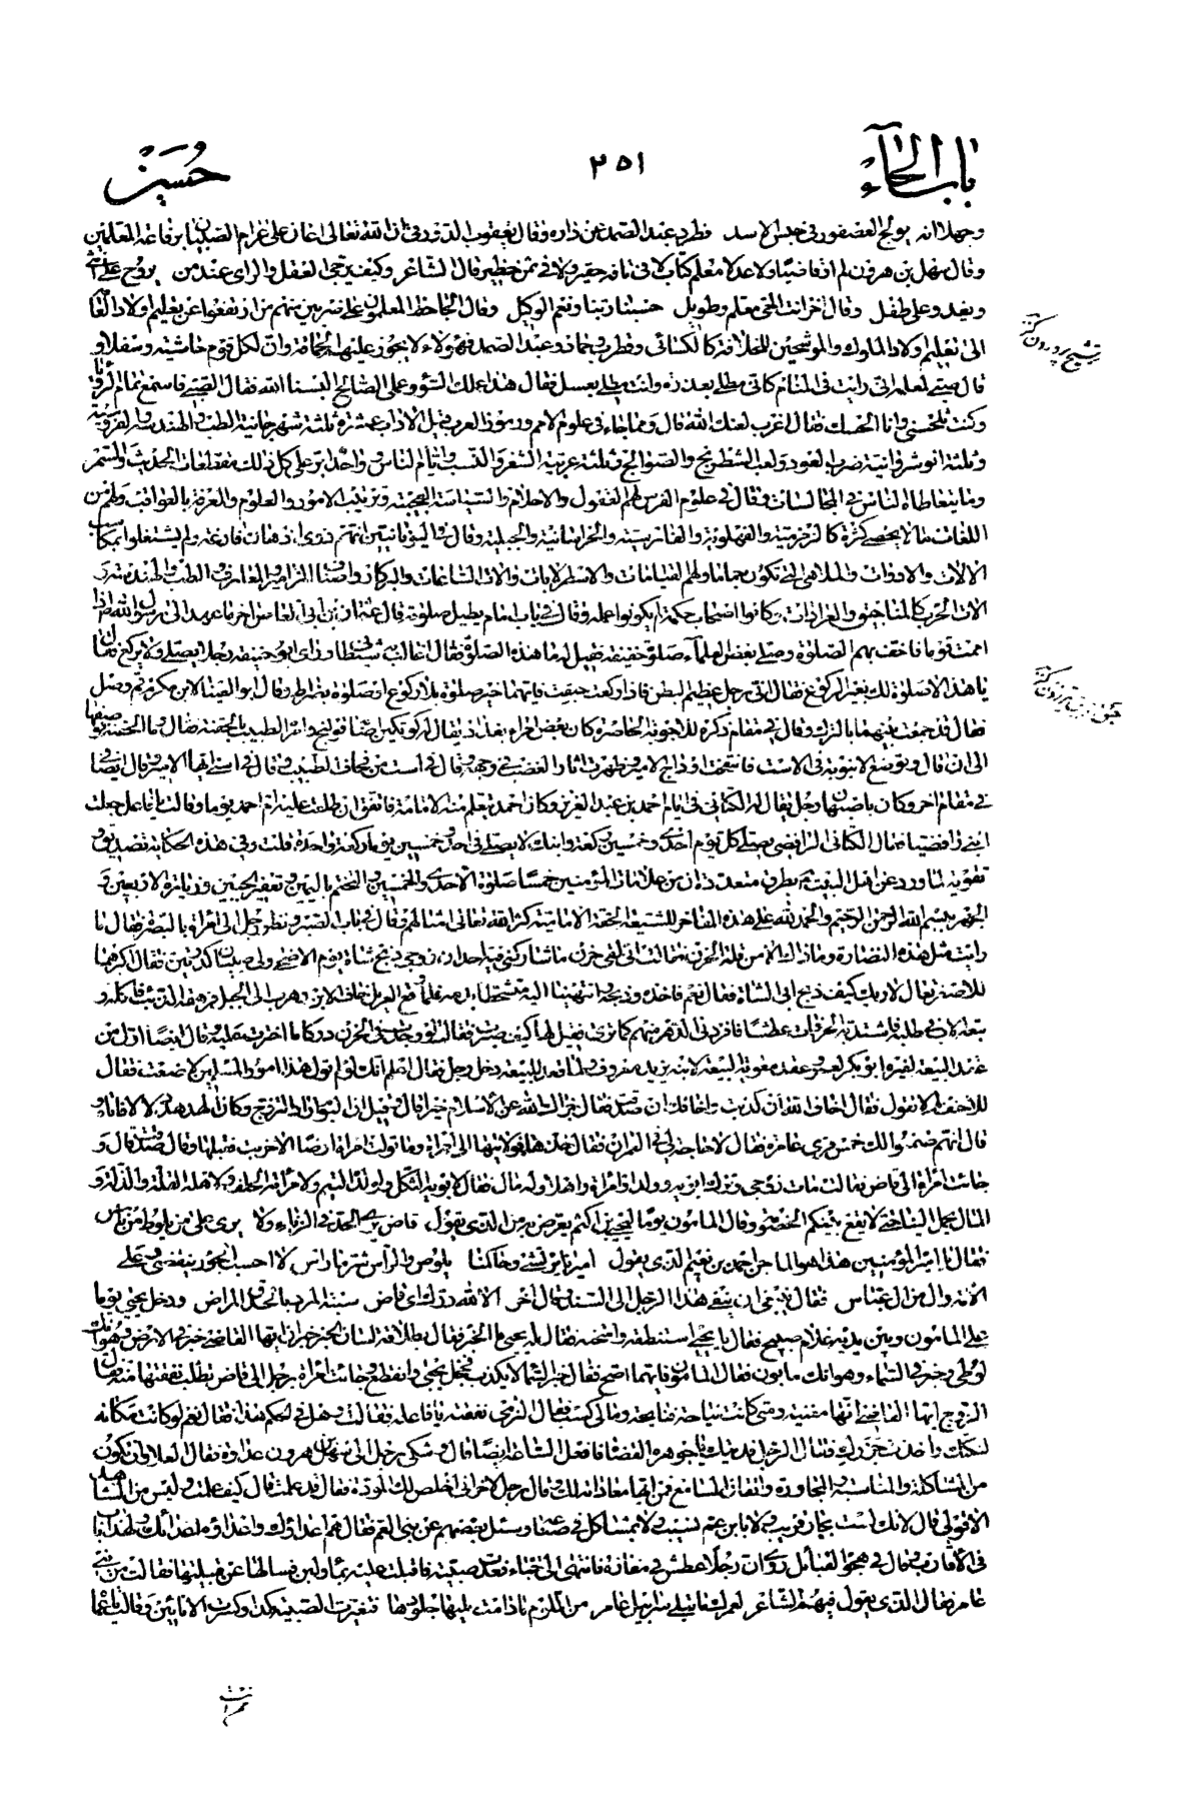 باب الحاء
٢٥١
حسين
وجهلا انه يولج العصفور في حبس الاسد فطرد عبد الصمد عن داره وقال يعقوب الدورقي ان الله تعالى اعان على عرام الصبيان برقاعة المعلمين
وقال سهل بن هرون لم ار قاضيا ولا عدلا معلم كتاب لا في تافه حقير ولا في ثمن خطير قال الشاعر وكيف يرجى العقل والراى عند من يروح على انثى
ويغدو على طفل وقال اخر انت الحمق معلم وطويل حسبنا ربنا ونعم الوكيل وقال الجاحظ المعلمون على ضربين منهم من ارتفعوا عن تعليم اولاد العامة
الى تعليم اولاد الملوك والموشحين للخلافة كالكسائي وقطرب وحماد وعبد الصمد فهؤلاء لا يجوز عليهم الحماقة وان لكل قوم حاشية وسفلا و
قال صبي لمعلمه اني رايت في المنام كاني مطلي بعذرة وانت مطلي بعسل فقال هذا عملك السوء وعملي الصالح البسنا الله فقال الصبي فاسمع تمام الرؤيا
وكنت تلحسني وانا الحسك فقال اغرب لعنك الله قال ومما جاء في علوم الامم ورموز العرب قيل الاداب عشرة ثلثة شهرجانية الطب والهندسة والفروسية
وثلثة انوشروانية ضرب العود ولعب الشطرنج والصوالج وثلثة عربية الشعر والنسب وايام الناس وواحد ابر على كل ذلك مقطعات الحديث والسمر
وما يتعاطاه الناس في المجالسات وقال في علوم الفرس لهم العقول والاحلام والسياسة العجيبة وترتيب الامور والعلوم والمعرفة بالعواقب ولهم من
اللغات ما لا يحصى كثرة كالزمزمية والفهلوية والفارسية والخراسانية والجبلية وقال في اليونانيين انهم ذوى اذهان فارغة ولم يشتغلوا بمكاسب
الالات والادوات والملاهي التي تكون جماما ولهم القبانات والاسطرلابات والات الساعات والبركار واصناف المزامير والمعازف والطب والهندسة و
الات الحرب كالمناجيق والعرادات وكانوا اصحاب حكمة لم يكونوا عملة وقال في باب امام يطيل صلوته قال عثمان بن ابى العاص اخر ما عهد الى رسول الله ص اذا
اممت قوما فاخفف بهم الصلوة وصلى بعض العلماء صلوة خفيفة فقيل له ما هذه الصلوة فقال اغالب شيطاني وراى ابو حنيفة رجلا يصلي ولا يركع فقال
يا هذا لا صلوة لك بغير الركوع فقال اني رجل عظيم البطن فاذا ركعت حبقت فايهما خير صلوة بلا ركوع او صلوة بضراط وقال ابو العينا لابن مكرم قم وصل
فقال قد جمعت بينهما بالترك وقال في مقام ذكره للاجوبة الحاضرة كان بعض امراء بغداد يقال له كوتكين اصابه قولنج وامر الطبيب بالحقنة فقال وما الحقنة فوصفها
الى ان قال وتوضع الانبوبة في الاست فانتفخت اوداج الامير وظهرت اثار الغضب في وجهه وقال في است من فخاف الطبيب وقال في استي ايها الامير وقال ايضا
في مقام اخر وكان باصبهان رجل يقال له الكناني في ايام احمد بن عبد العزيز وكان احمد يتعلم منه الامامة فاتفق ان طلعت عليه ام احمد يوما وقالت يا فاعل جعلت
ابني رافضيا فقال الكناني الرافضي يصلي كل يوم احدى وخمسين ركعة وابنك لا يصلي في احد وخمسين يوما ركعة واحدة قلت وفي هذه الحكاية تصديق و
تقوية لما ورد عن اهل البيت ع بطرق متعددة ان من علامات المؤمنين خمسا صلوة الاحدى والخمسين والتختم باليمين وتعفير الجبين وزيارة الاربعين و
الجهر ببسم الله الرحمن الرحيم والحمد لله على هذه المفاخر للشيعة المحقة الامامية كثر الله تعالى امثالهم وقال في باب الصبر ونظر رجل الى امرأة بالبصرة فقال ما
رايت مثل هذه النضارة وما ذاك الا من قلة الحزن فقالت اني لفي حزن ما شاركني فيه احد ان زوجي ذبح شاة يوم الاضحى ولي صبيان كالدرتين فقال اكبرهما
للاصغر تعال لاريك كيف ذبح ابي الشاة فقال نعم فاخذه وذبحه وانتهينا اليه متشحطا بدمه فلما وقع العويل خاف الابن وهرب الى الجبل فرهقه الذئب فاكله و
تبعه الاب في طلبه فاشتد به الحر فمات عطشا فافردني الدهر منهم كما ترى فقيل لها كيف صبرت فقالت لو وجدت في الحزن دركا ما اخترت عليه وقال ايضا اول من
عقد البيعة لغيره ابو بكر لعمر وعقد معوية البيعة لابنه يزيد معروف ولما قعد للبيعة دخل رجل فقال اعلم انك لو لم تول هذا امور المسلمين لاضعت فقال
للاحنف لم لا تقول فقال اخاف الله ان كذبت واخافك ان صدقت فقال جزاك الله عن الاسلام خيرا
قال انهم ضمنوا لك خمس قرى عامرة فقال لا حاجة لي في العمران
جاءت امرأة الى قاض فقالت مات زوجي وترك ابويه وولدا وامرأة واهلا وله مال فقال لابويه الثكل ولولده اليتم ولامرأته الخلف ولاهله القلة والذلة و
المال يحمل الينا حتى لا يقع بينكم الخصومة وقال المامون يوما ليحيى بن اكثم يعرض به من الذي يقول قاض يرى الحد في الزناء ولا يرى على من يلوط من باس
فقال يا امير المؤمنين هذا هو الماجن احمد بن نعيم الذي يقول اميرنا يرتشي وحاكمنا يلوط والراس شر ما راس لا احسب الجور ينقضي وعلى
الامة وال من ال عباس فقال ينبغي ان ينفى هذا الرجل الى السند وقال اخر
على المامون وبين يديه غلام صبيح فقال يا يحيى استنطقه وامتحنه فقال له يحيى ما الخبر فقال بطلاقة لسان الخبر خبران ايها القاضي خبر في الارض وهو انك
لوطي وخبر في السماء وهو انك مابون فقال المامون فايهما اصح فقال خبر السماء لا يكذب فخجل يحيى وانقطع وجاءت امرأة برجل الى قاض تطلب نفقتها منه فقال
الزوج ايها القاضي انها مغنية ومتى كانت نياحة فنايحة ومالي كسب فقال الزمي نفقته يا فاعلة فقالت وهل في الحكم هذا فقال نعم لو كانت مكانه
لنكتك واخذت جذرك
من المشاكلة والمناسبة والمجاورة واتفاق الصنائع فمن ايها معاداته لك وقال رجل لاخر اني اخلص لك المودة فقال قد علمت قال كيف علمت وليس معي من الشاهد
الا قولي قال لانك لست بجار قريب ولا بابن عم نسيب ولا بمشاكل في صناعة وسئل بعضهم عن بني العم فقال هم اعداؤك واعداء اعدائك
في الاقارب وقال في هجو القبائل روى ان رجلا عطش في مفازة فانتهى الى خباء فعدت صبية فاقبلت عليه بماء ولبن فسالها عن قبيلتها فقالت من بني
عامر فقال الذي يقول فيهم الشاعر لعمرك ما تبلى سرابيل عامر من اللوم ما دامت عليها جلودها فتغيرت الصبية